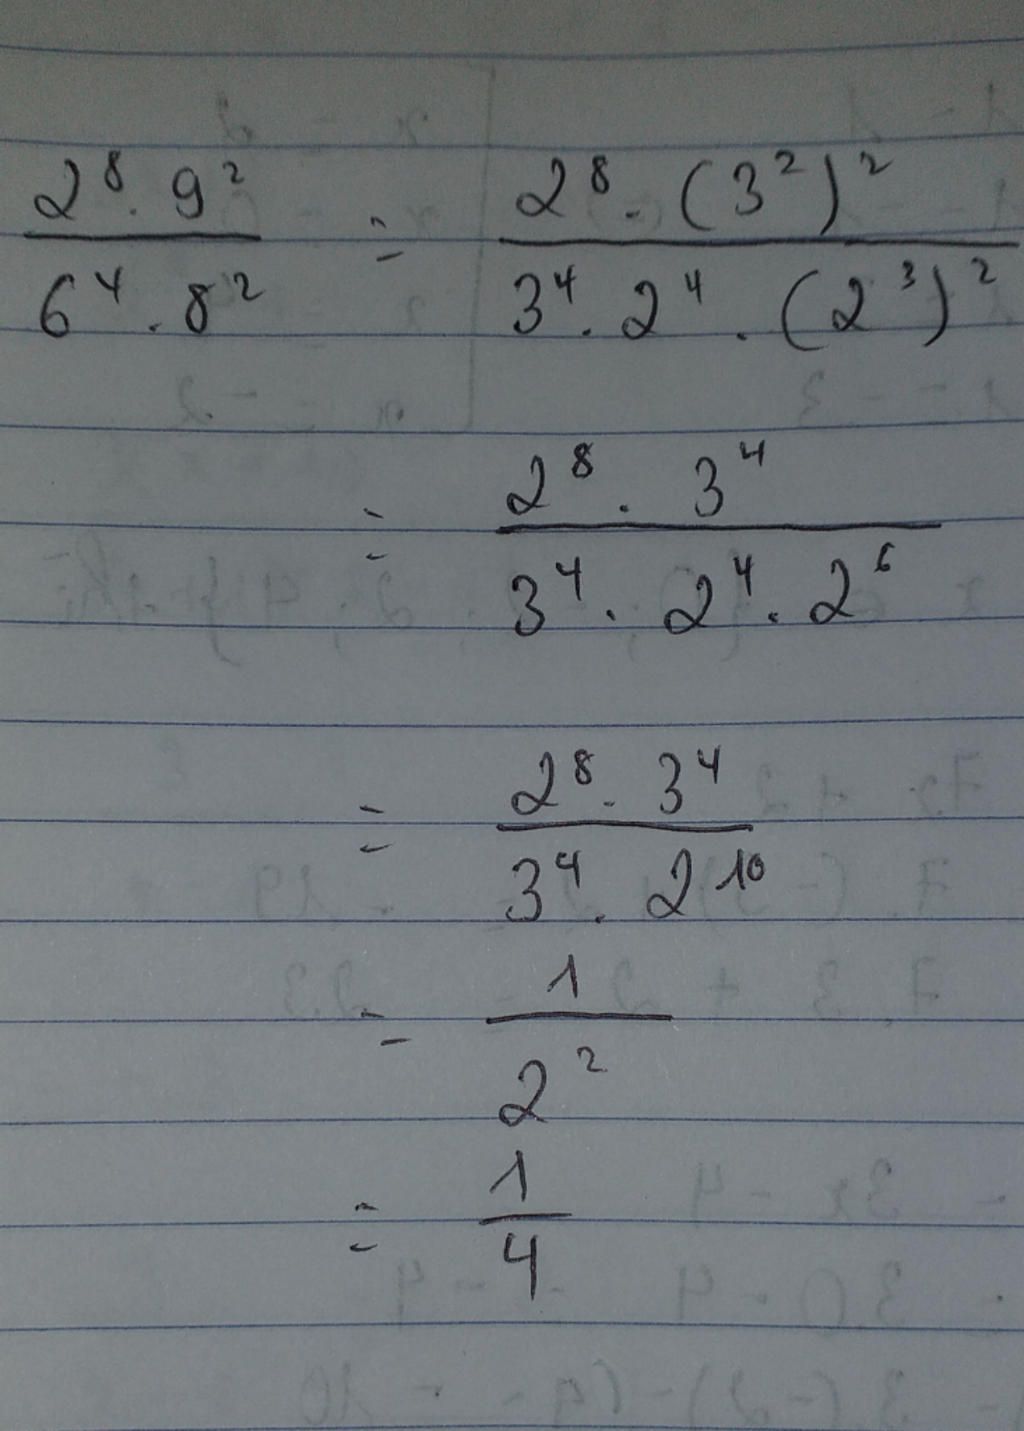 2⁸ . 9² / 6⁴ . 8² = 2⁸ . (3²)² / 3⁴ . 2⁴ . (2³)²
= 2⁸ . 3⁴ / 3⁴ . 2⁴ . 2⁶
= 2⁸ . 3⁴ / 3⁴ . 2¹⁰
= 1 / 2²
= 1 / 4